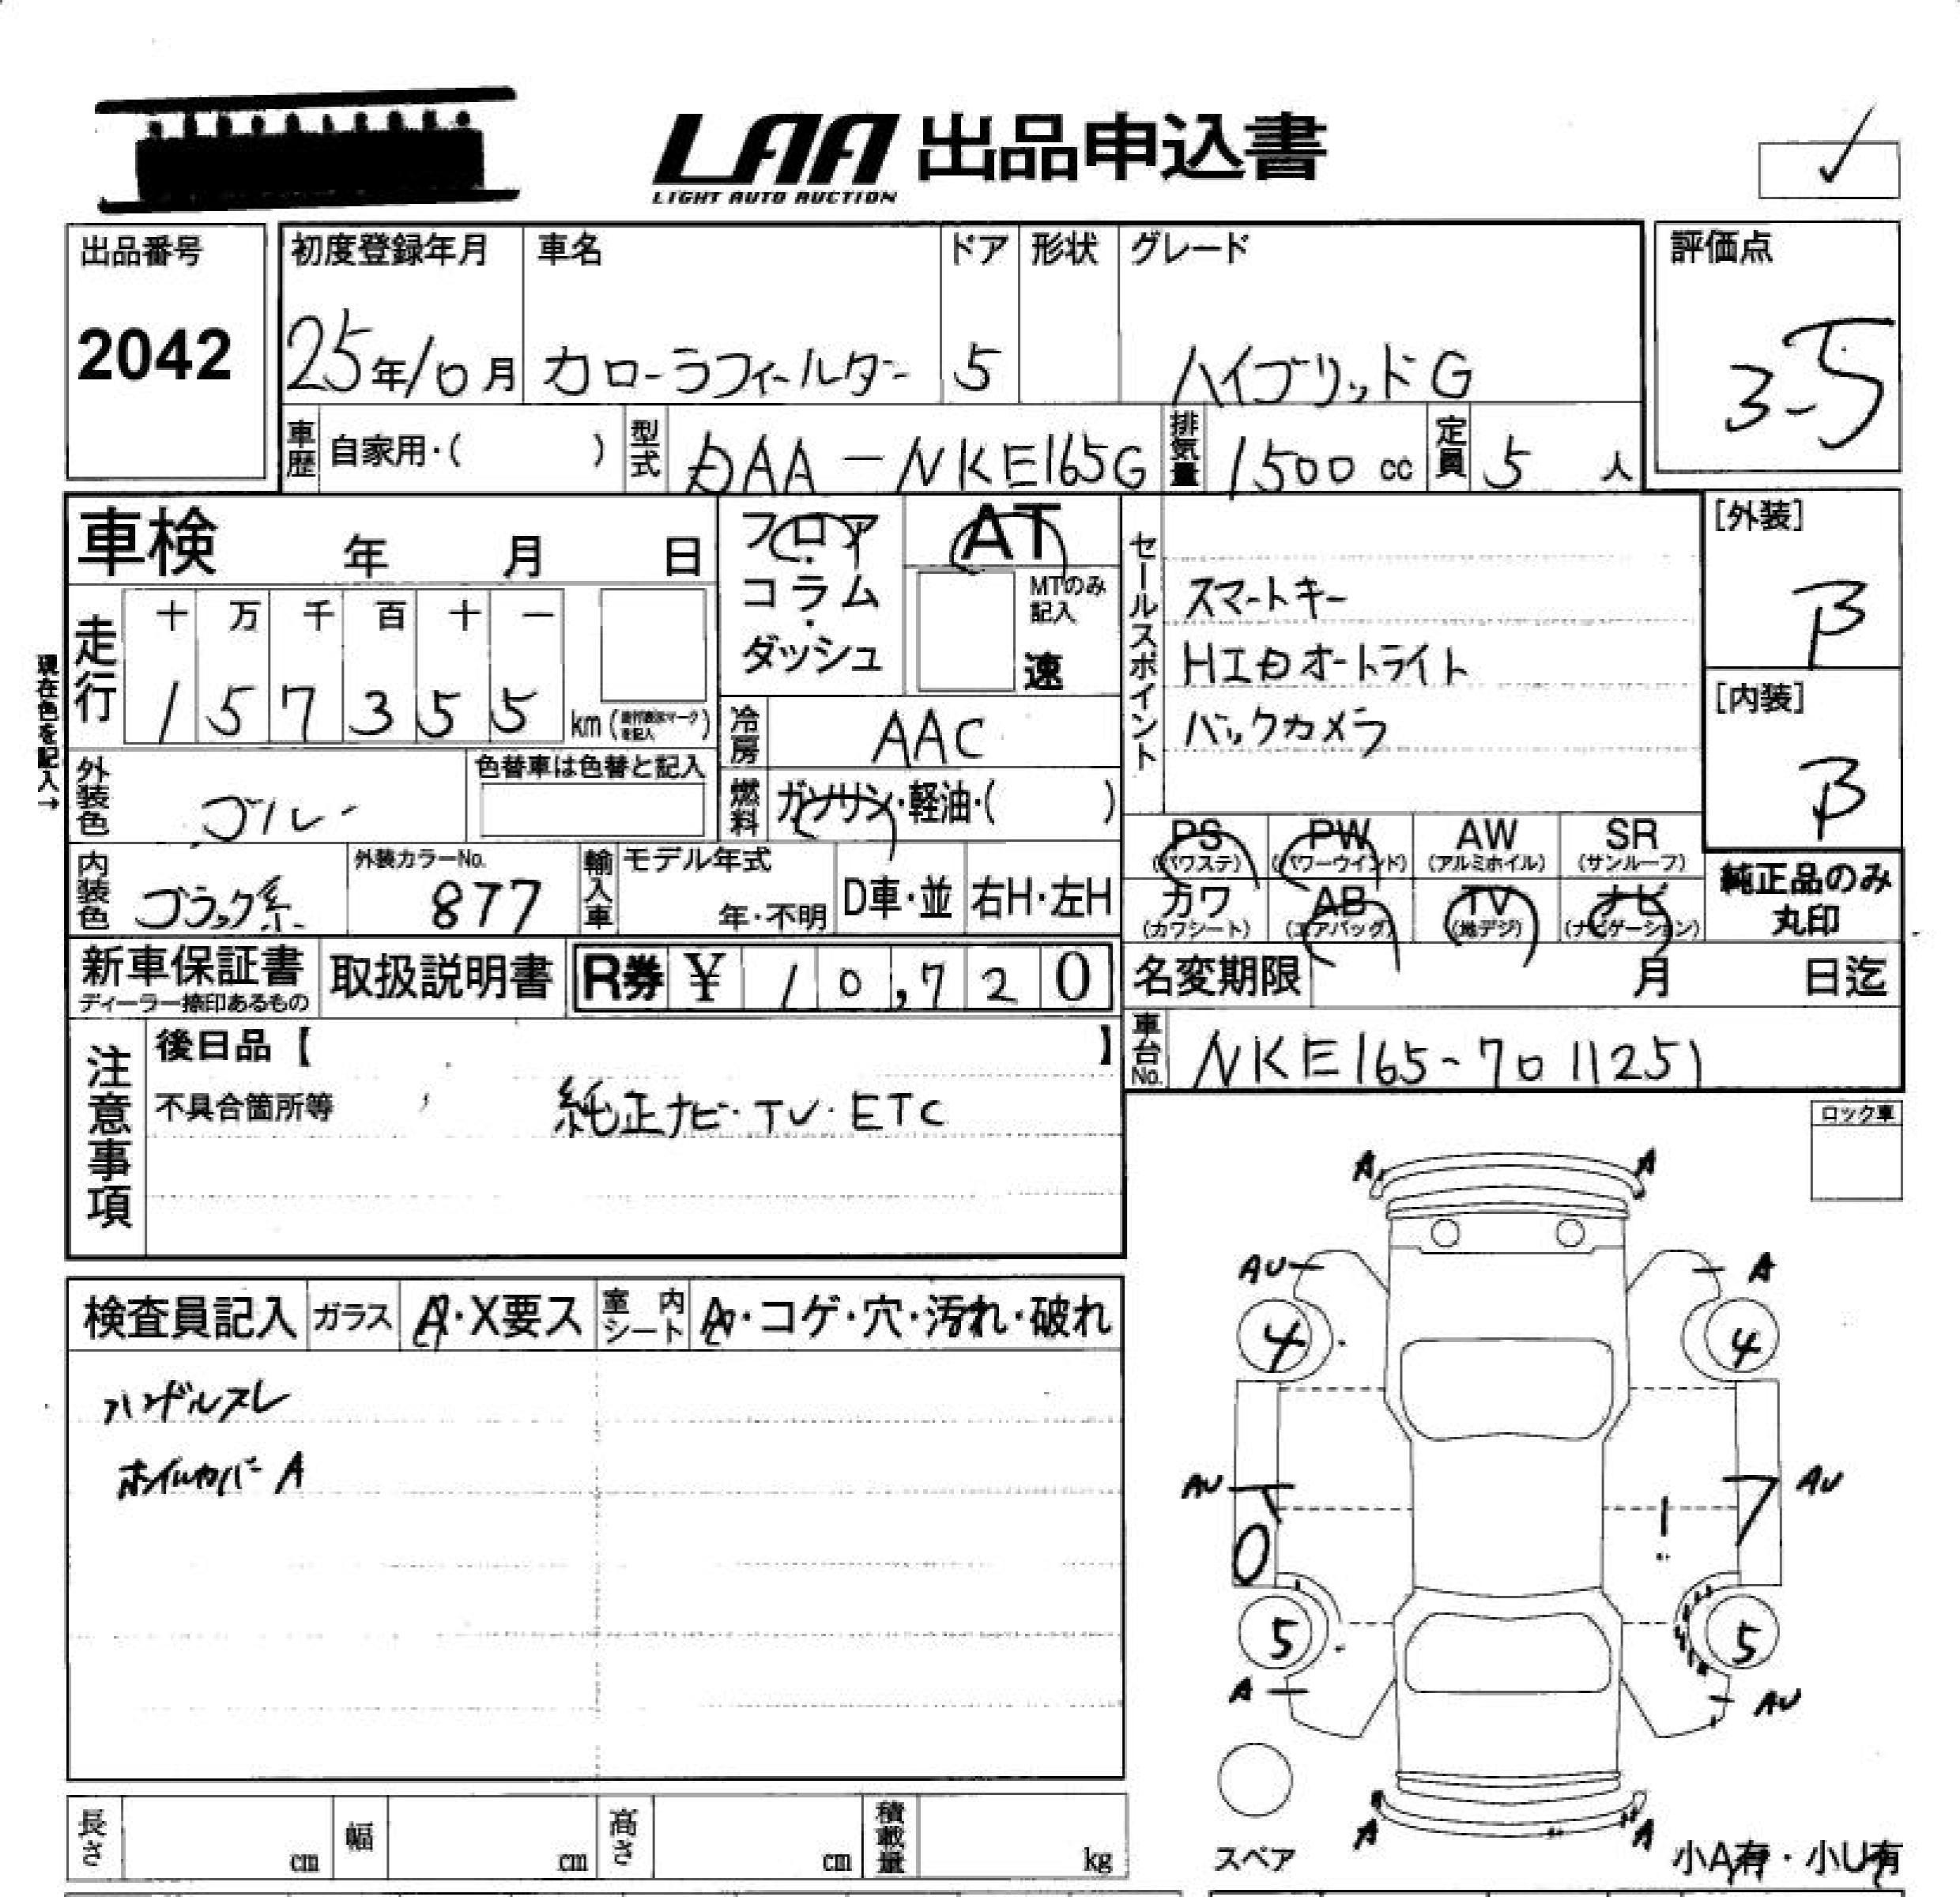 LAA 出品申込書
LIGHT AUTO AUCTION
出品番号 初度登録年月 車名 ドア 形状 グレード 評価点
2042 25年10月 カローラフィールダー 5 ハイブリッドG 3-5
車歴 自家用・( ) 型式 DAA-NKE165G 排気量 1500 cc 定員 5 人
車検 年 月 日 フロア・コラム・ダッシュ AT
MTのみ記入 速
セールスポイント
スマートキー
HIDオートライト
バックカメラ
[外装] B
[内装] B
現在色を記入→
走行 十 万 千 百 十 一
1 5 7 3 5 5 km
冷房 AAC
外装色 ブルー 色替車は色替と記入
燃料 ガソリン・軽油・( )
PS (パワステ) PW (パワーウインド) AW (アルミホイル) SR (サンルーフ)
カワ (カワシート) AB (エアバッグ) TV (地デジ) ナビ (ナビゲーション)
純正品のみ
丸印
内装色 ブラック系 外装カラーNo. 877 輸入車 モデル年式 年・不明 D車・並 右H・左H
新車保証書 ディーラー捺印あるもの 取扱説明書 R券 ¥ 10,720
名変期限 月 日迄
車台No. NKE165-7011251
注意事項
後日品【 】
不具合箇所等 純正ナビ・TV・ETC
ロック車
検査員記入 ガラス A・X要ス 室内シート A・コゲ・穴・汚れ・破れ
ハンドルスレ
ホイルカバー A
A A
AU A
4 4
AU AU
5 5
A AU
A A
スペア 小A有・小U有
長さ cm 幅 cm 高さ cm 積載量 kg